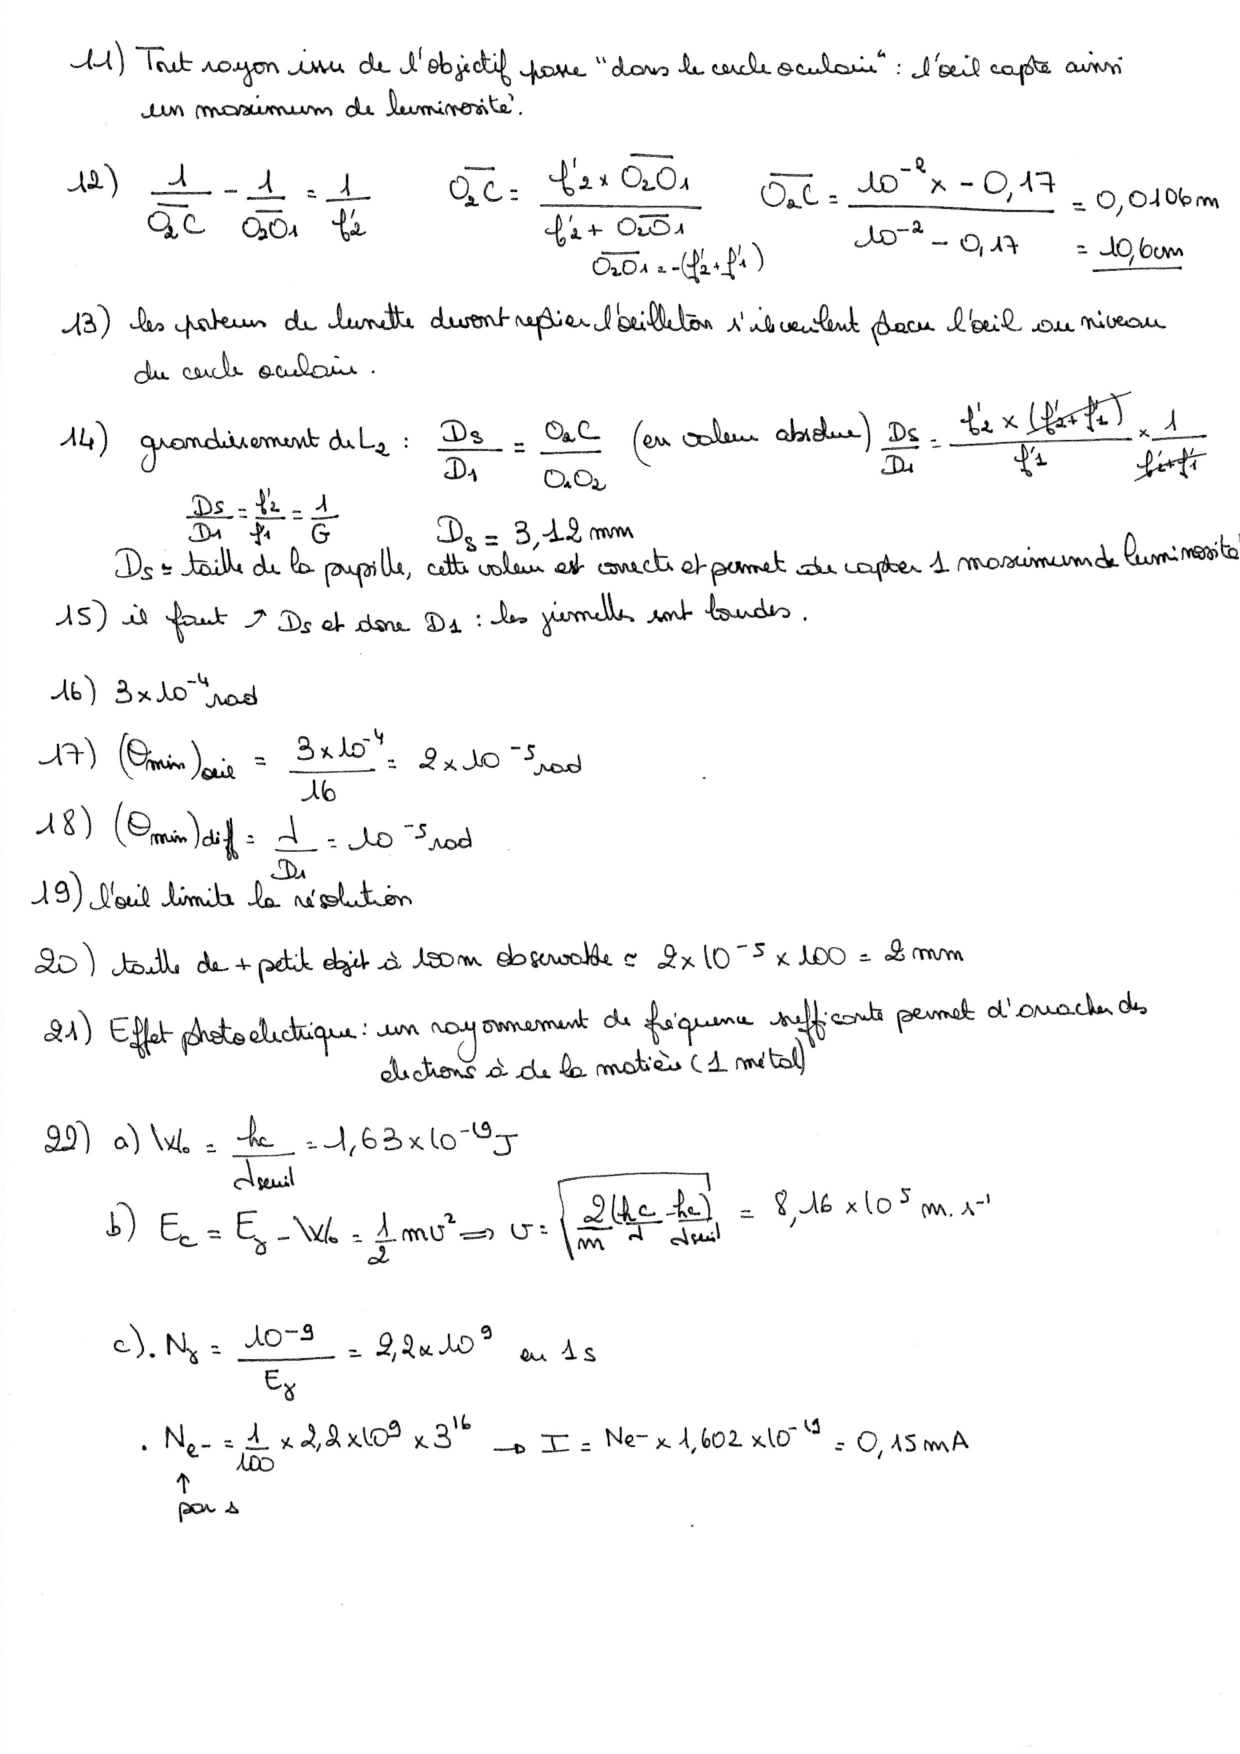 11) Tout rayon issu de l'objectif passe "dans le cercle oculaire" : l'œil capte ainsi
un maximum de luminosité.
12) 1/O₂C - 1/O₂O₁ = 1/f'₂   O₂C = (f'₂ × O₂O₁)/(f'₂ + O₂O₁)   O₂C = (10⁻² × -0,17)/(10⁻² - 0,17) = 0,0106 m
O₂O₁ = -(f'₂ + f'₁)   = 10,6 cm
13) les porteurs de lunette devront replier l'œilleton s'ils veulent placer l'œil au niveau
du cercle oculaire.
14) grandissement de L₂ : Ds/D₁ = O₂C/O₁O₂ (en valeur absolue) Ds/D₁ = f'₂ × (f'₂ + f'₁)/f'₁ × 1/(f'₂ + f'₁)
Ds/D₁ = f'₂/f'₁ = 1/G   Ds = 3,12 mm
Ds ≃ taille de la pupille, cette valeur est correcte et permet de capter 1 maximum de luminosité
15) il faut ↗ Ds et donc D₁ : les jumelles sont lourdes.
16) 3 × 10⁻⁴ rad
17) (θmin)œil = 3 × 10⁻⁴/16 = 2 × 10⁻⁵ rad
18) (θmin)diff = λ/D₁ = 10⁻⁵ rad
19) l'œil limite la résolution
20) taille de + petit objet à 100m observable ≃ 2 × 10⁻⁵ × 100 = 2 mm
21) Effet photoélectrique : un rayonnement de fréquence suffisante permet d'arracher des
électrons à de la matière (1 métal)
22) a) W₀ = hc/λseuil = 1,63 × 10⁻¹⁹ J
b) Ec = Eγ - W₀ = 1/2 mv² ⟹ v = √(2/m (hc/λ - hc/λseuil)) = 8,16 × 10⁵ m.s⁻¹
c) . Nγ = 10⁻⁹/Eγ = 2,2 × 10⁹ en 1s
. Ne⁻ = 1/100 × 2,2 × 10⁹ × 3¹⁶ → I = Ne⁻ × 1,602 × 10⁻¹⁹ = 0,15 mA
↑
par s